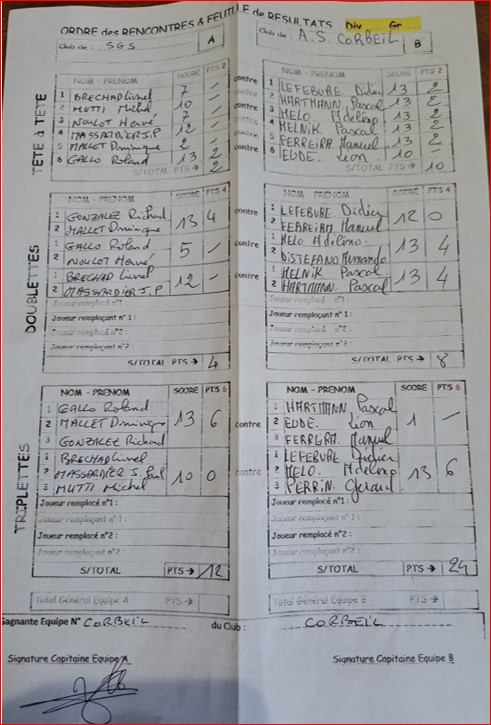 ORDRE des RENCONTRES & FEUILLE de RESULTATS Div Gr ...
Club de : SGS A
Club de : A.S. CORBEIL B
TETE à TETE
NOM - PRENOM SCORE PTS 2
1 BRECHAD Lionel 7 -
2 MUTTI Michel 10 -
3 NOULOT Hervé 7 -
4 MASSARDIER J.P 12 -
5 MALLET Dominique 2 -
6 GALLO Roland 13 2
S/TOTAL PTS → 2
contre
contre
contre
contre
contre
contre
NOM - PRENOM SCORE PTS 2
1 LEFEBURE Didier 13 2
2 HARTMANN Pascal 13 2
3 MELO Adelino 13 2
4 MELNIK Pascal 13 2
5 FERREIRA Manuel 13 2
6 EUDE Lion 10 -
S/TOTAL PTS → 10
DOUBLETTES
NOM - PRENOM SCORE PTS 4
1 GONZALEZ Richard 13 4
2 MALLET Dominique
1 GALLO Roland 5 -
2 NOULOT Hervé
1 BRECHAD Lionel 12 -
2 MASSARDIER J.P
Joueur remplacé n°1 :
Joueur remplaçant n°1 :
Joueur remplacé n°2 :
Joueur remplaçant n°2 :
S/TOTAL PTS → 4
contre
contre
contre
NOM - PRENOM SCORE PTS 4
1 LEFEBURE Didier 12 0
2 FERREIRA Manuel
1 MELO Adelino. 13 4
2 DISTEFANO Armando
1 MELNIK Pascal 13 4
2 HARTMANN. Pascal
Joueur remplacé n°1 :
Joueur remplaçant n°1 :
Joueur remplacé n°2 :
Joueur remplaçant n°2 :
S/TOTAL PTS → 8
TRIPLETTES
NOM - PRENOM SCORE PTS 6
1 GALLO Roland
2 MALLET Dominique 13 6
3 GONZALEZ Richard
1 BRECHAD Lionel
2 MASSARDIER J. Paul 10 0
3 MUTTI Michel
Joueur remplacé n°1 :
Joueur remplaçant n°1 :
Joueur remplacé n°2 :
Joueur remplaçant n°2 :
S/TOTAL PTS → 12
contre
contre
NOM - PRENOM SCORE PTS 6
1 HARTMANN Pascal
2 EUDE. Lion 1 -
3 FERREIRA Manuel
1 LEFEBURE Didier
2 MELO. Adelino 13 6
3 PERRIN. Gérard
Joueur remplacé n°1 :
Joueur remplaçant n°1 :
Joueur remplacé n°2 :
Joueur remplaçant n°2 :
S/TOTAL PTS → 24
Total Général Equipe A PTS →
Total Général Equipe B PTS →
Gagnante Equipe N° CORBEIL du Club : CORBEIL
Signature Capitaine Equipe A
Signature Capitaine Equipe B